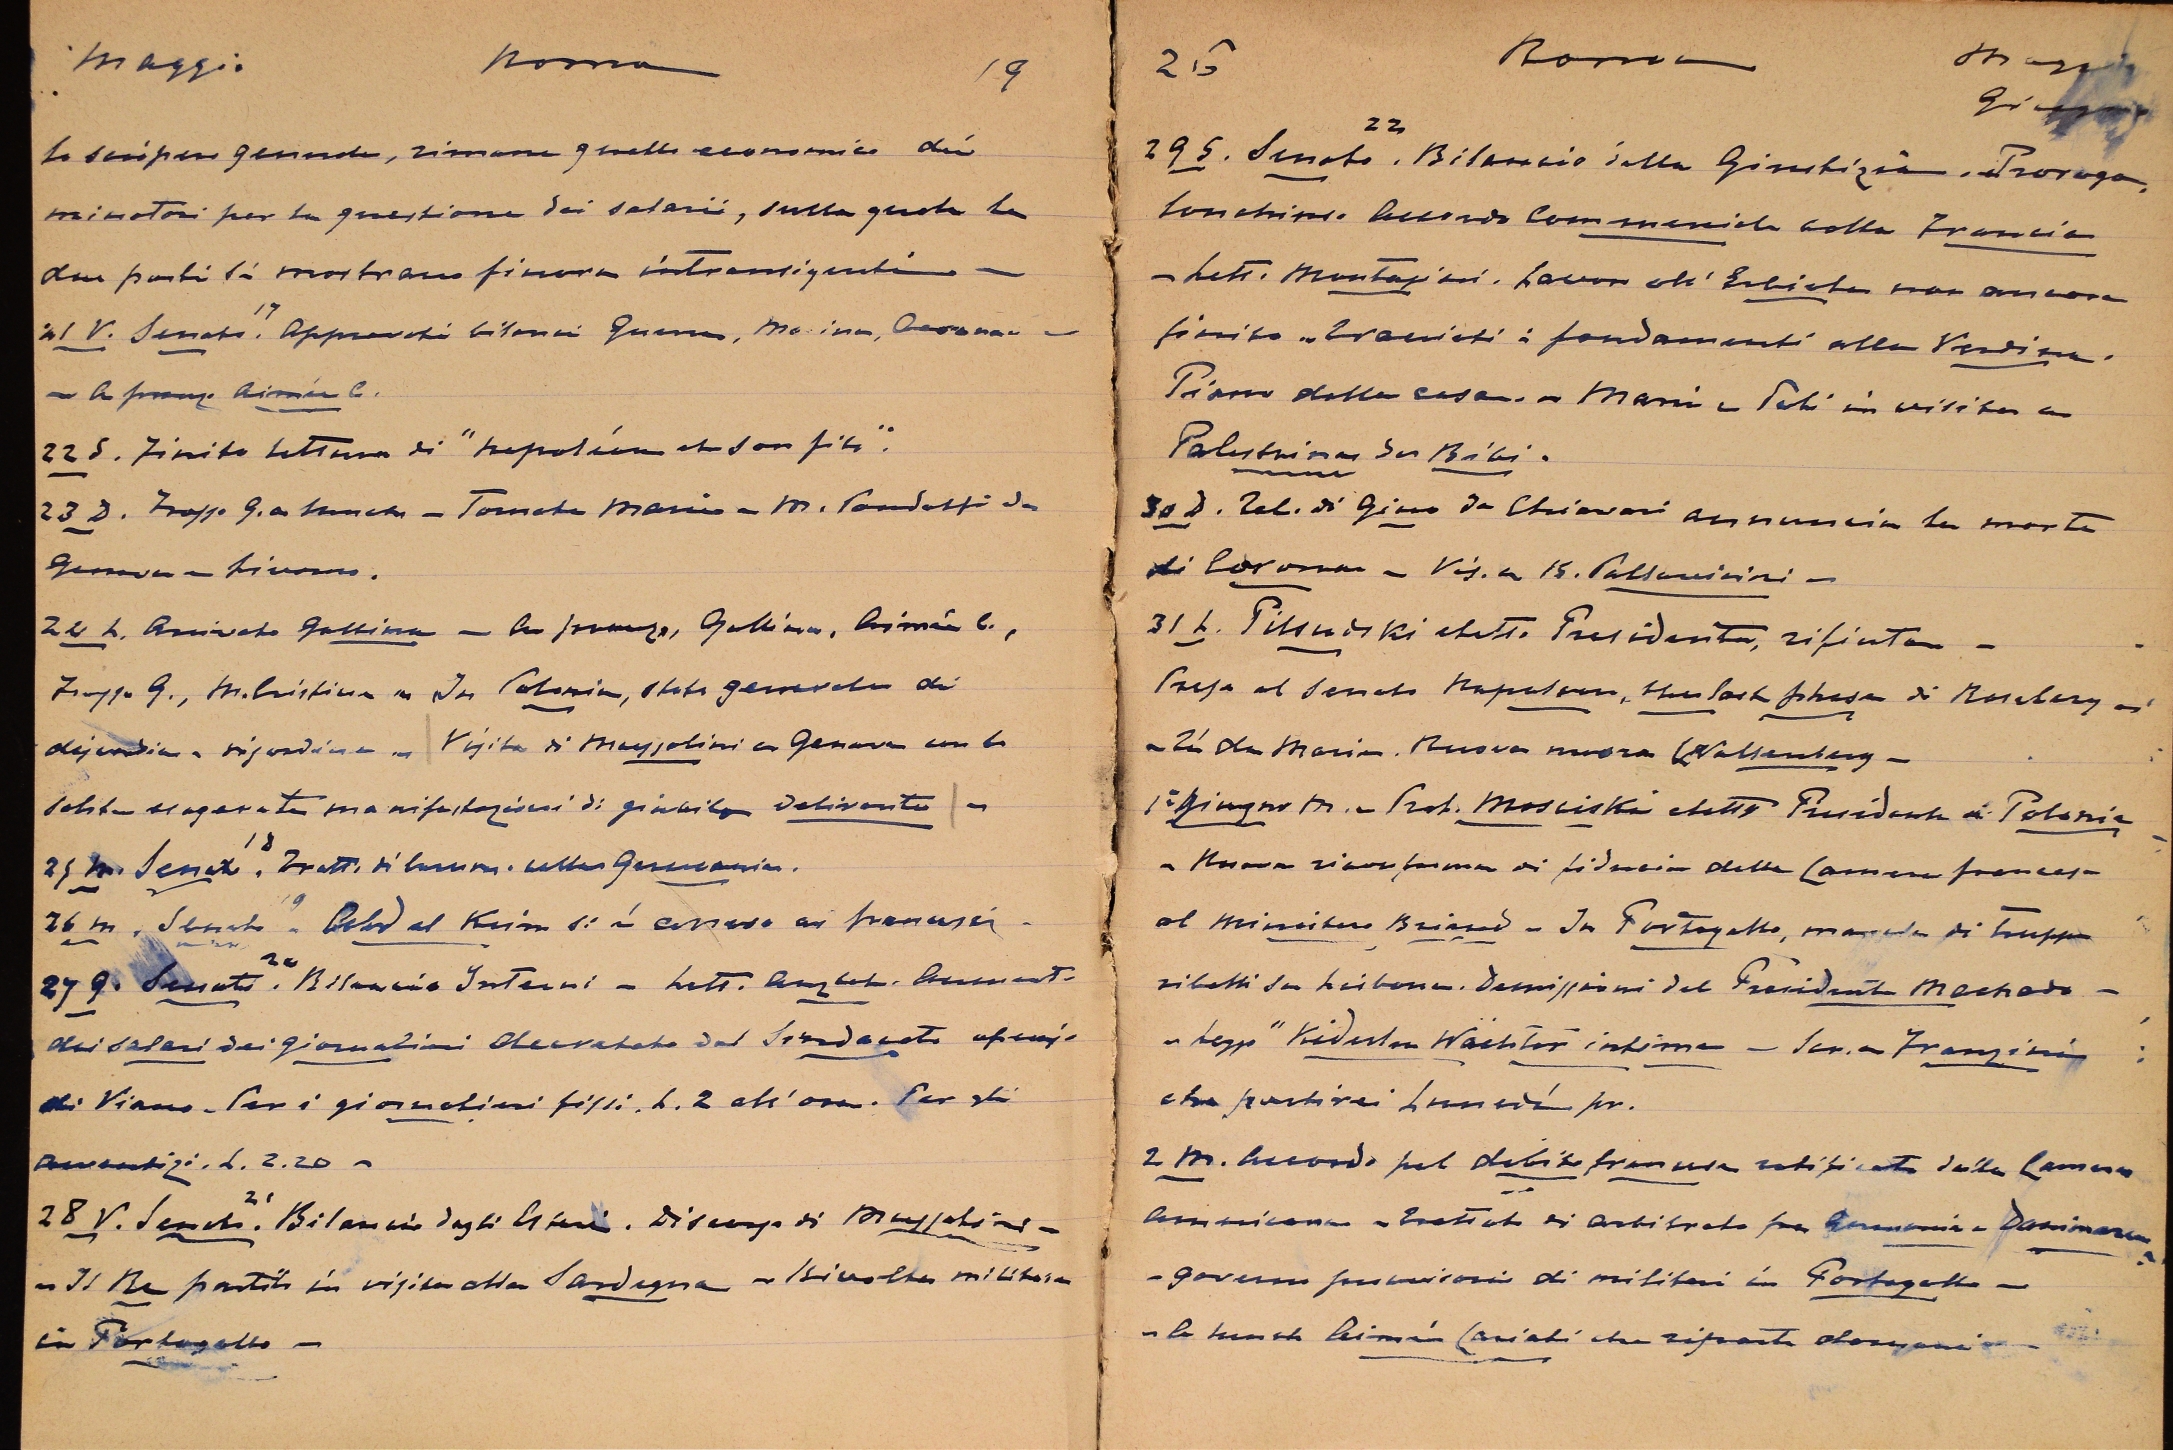 Maggio Roma 19
lo sciopero generale, rimane quello economico dei
minatori per la questione dei salarii, sulla quale le
due parti si mostrano finora intransigenti —
21 V. Senato 17. Approvati bilanci Guerra, Marina, Aeronau —
— A pranzo Aimée C.
22 S. Finito lettura di "Napoléon et son fils".
23 D. G. a lunch — Tornate Maria e M. Pandolfi da
Genova e Livorno.
24 L. Arrivato Gallina — A pranzo, Gallina, Aimée C.,
G., M. Cristina — In Polonia, stato generale di
— Visita di Mussolini a Genova con le
solite esagerate manifestazioni di giubilo delirante —
25 M. Senato 18. Tratt. di comm. colla Germania.
26 M. Senato 19 — Abd el Krim si è arreso ai francesi —
27 G. Senato 20. Bilancio Interni — Lett. Aument.
dei salari dei giornalieri decretato dal Sindacato
di Viano — Per i giornalieri fissi, L. 2 all'ora. Per gli
avventizi. L. 2.20 —
28 V. Senato 21. Bilancio degli Esteri. Discorso di Mussolini —
— Il Re partito in visita alla Sardegna — Rivolta militare
in Portogallo —
Roma Maggio
Giugno
29 S. Senato 22. Bilancio della Giustizia. Proroga
Accordo Commerciale colla Francia
— Lett. Montagini. Lavoro all' non ancora
finito — i fondamenti alla Verdina.
Piano della casa. — Maria e in visita a
Palestrina da Bibi.
30 D. Tel. di Gino da Chiavari annuncia la morte
di Corona — Vis. a Pallavicini —
31 L. Pilsudski eletto Presidente, rifiuta —
Preso al Senato Napoleon, the last phase di Rosebery —
— Tè da Maria. Nuova nuora (Wallenberg —
1° Giugno M. — Prof. Mosciski eletto Presidente di Polonia
— Nuova riconferma di fiducia della Camera francese
al Ministero Briand — In Portogallo, marcia di truppe
ribelli su Lisbona. Demissioni del Presidente Machado —
— Leggo "Kiderlen Wächter intime — Scr. a Franzini
che partirei lunedì pr.
2 M. Accordo pel debito francese ratificato dalla Camera
Americana — Trattato di arbitrato fra Germania e Danimarca
— Governo provvisorio di militari in Portogallo —
— A lunch Aimée Cariati che riparte domani —